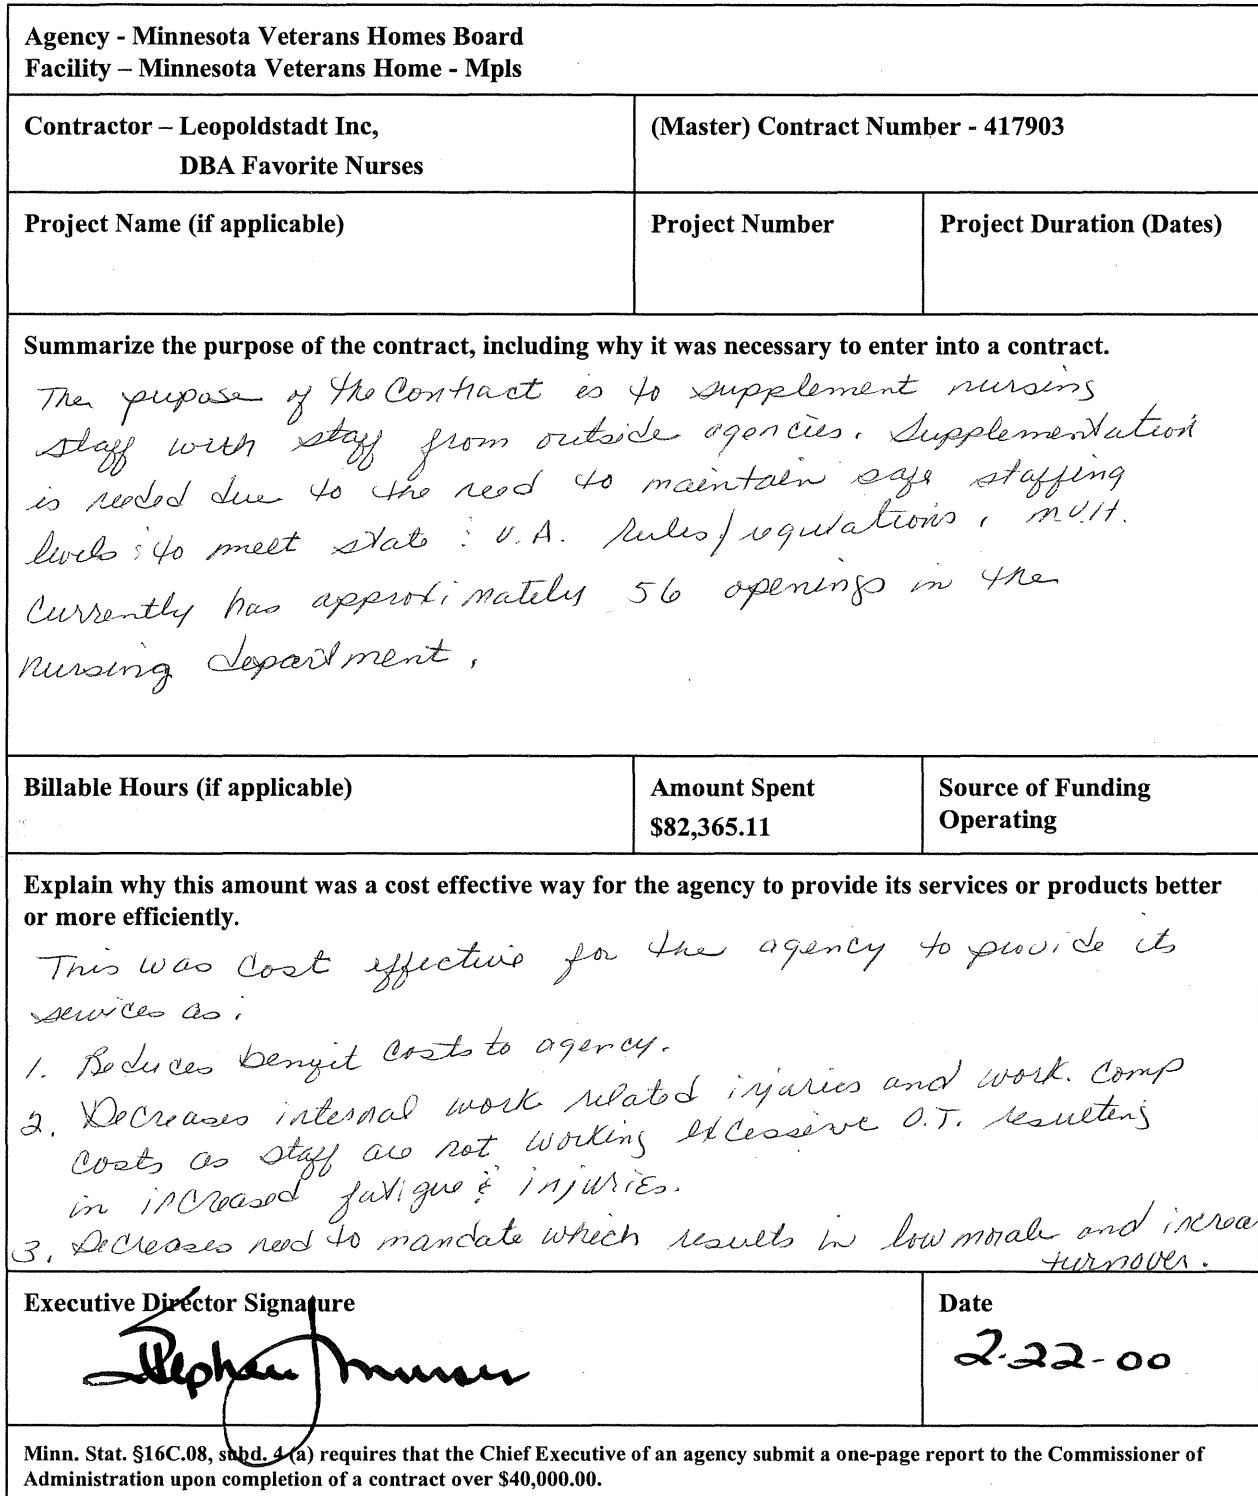 Agency - Minnesota Veterans Homes Board
Facility – Minnesota Veterans Home - Mpls
Contractor – Leopoldstadt Inc,
DBA Favorite Nurses
(Master) Contract Number - 417903
Project Name (if applicable)
Project Number
Project Duration (Dates)
Summarize the purpose of the contract, including why it was necessary to enter into a contract.
The pupose of the Contract is to supplement nursing
staff with staff from outside agencies. Supplementation
is needed due to the need to maintain safe staffing
levels & to meet state & V.A. rules/regulations. M.V.H.
currently has approximately 56 openings in the
nursing department.
Billable Hours (if applicable)
Amount Spent
$82,365.11
Source of Funding
Operating
Explain why this amount was a cost effective way for the agency to provide its services or products better
or more efficiently.
This was cost effective for the agency to provide its
services as:
1. Reduces benefit costs to agency.
2. Decreases internal work related injuries and work. comp
costs as staff are not working excessive O.T. resulting
in increased fatigue & injuries.
3. Decreases need to mandate which results in low morale and increa
turnover.
Executive Director Signature
Stephen J Musser
Date
2-22-00
Minn. Stat. §16C.08, subd. 4 (a) requires that the Chief Executive of an agency submit a one-page report to the Commissioner of
Administration upon completion of a contract over $40,000.00.